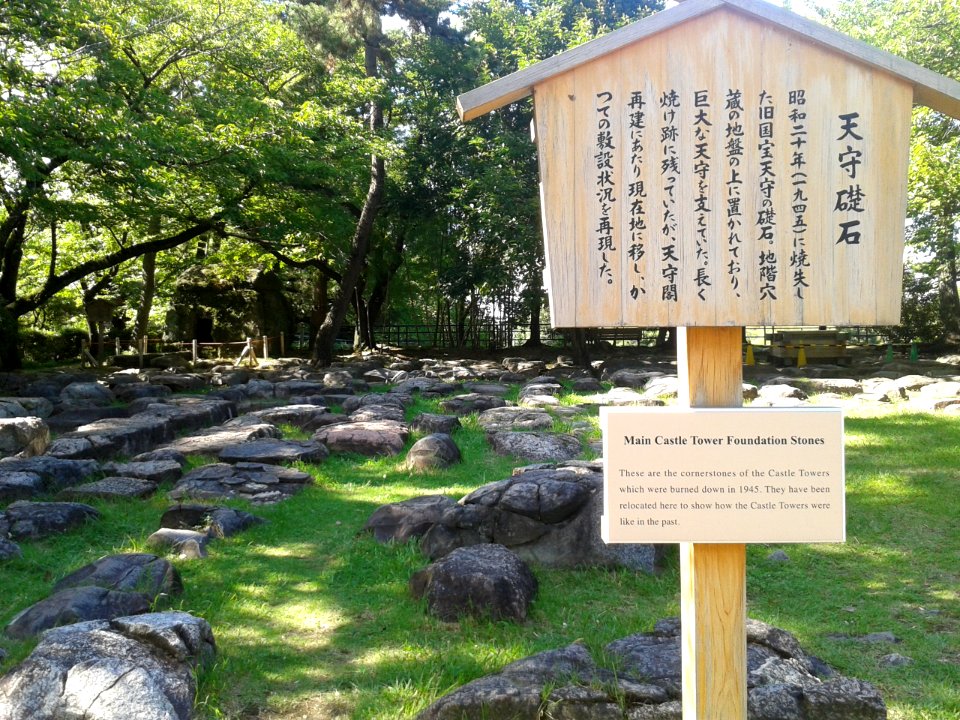 天守礎石
昭和二十年(一九四五)に焼失し
た旧国宝天守の礎石。地階穴
蔵の地盤の上に置かれており、
巨大な天守を支えていた。長く
焼け跡に残っていたが、天守閣
再建にあたり現在地に移し、か
つての敷設状況を再現した。
Main Castle Tower Foundation Stones
These are the cornerstones of the Castle Towers
which were burned down in 1945. They have been
relocated here to show how the Castle Towers were
like in the past.